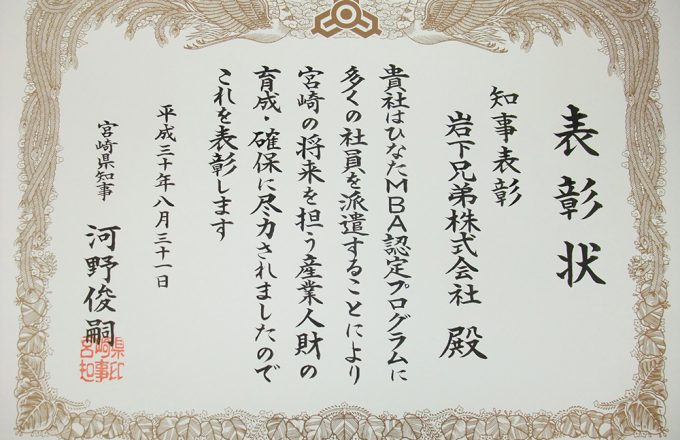 表彰状
知事表彰
岩下兄弟株式会社 殿
貴社はひなたMBA認定プログラムに
多くの社員を派遣することにより
宮崎の将来を担う産業人財の
育成・確保に尽力されましたので
これを表彰します
平成三十年八月三十一日
宮崎県知事 河野俊嗣